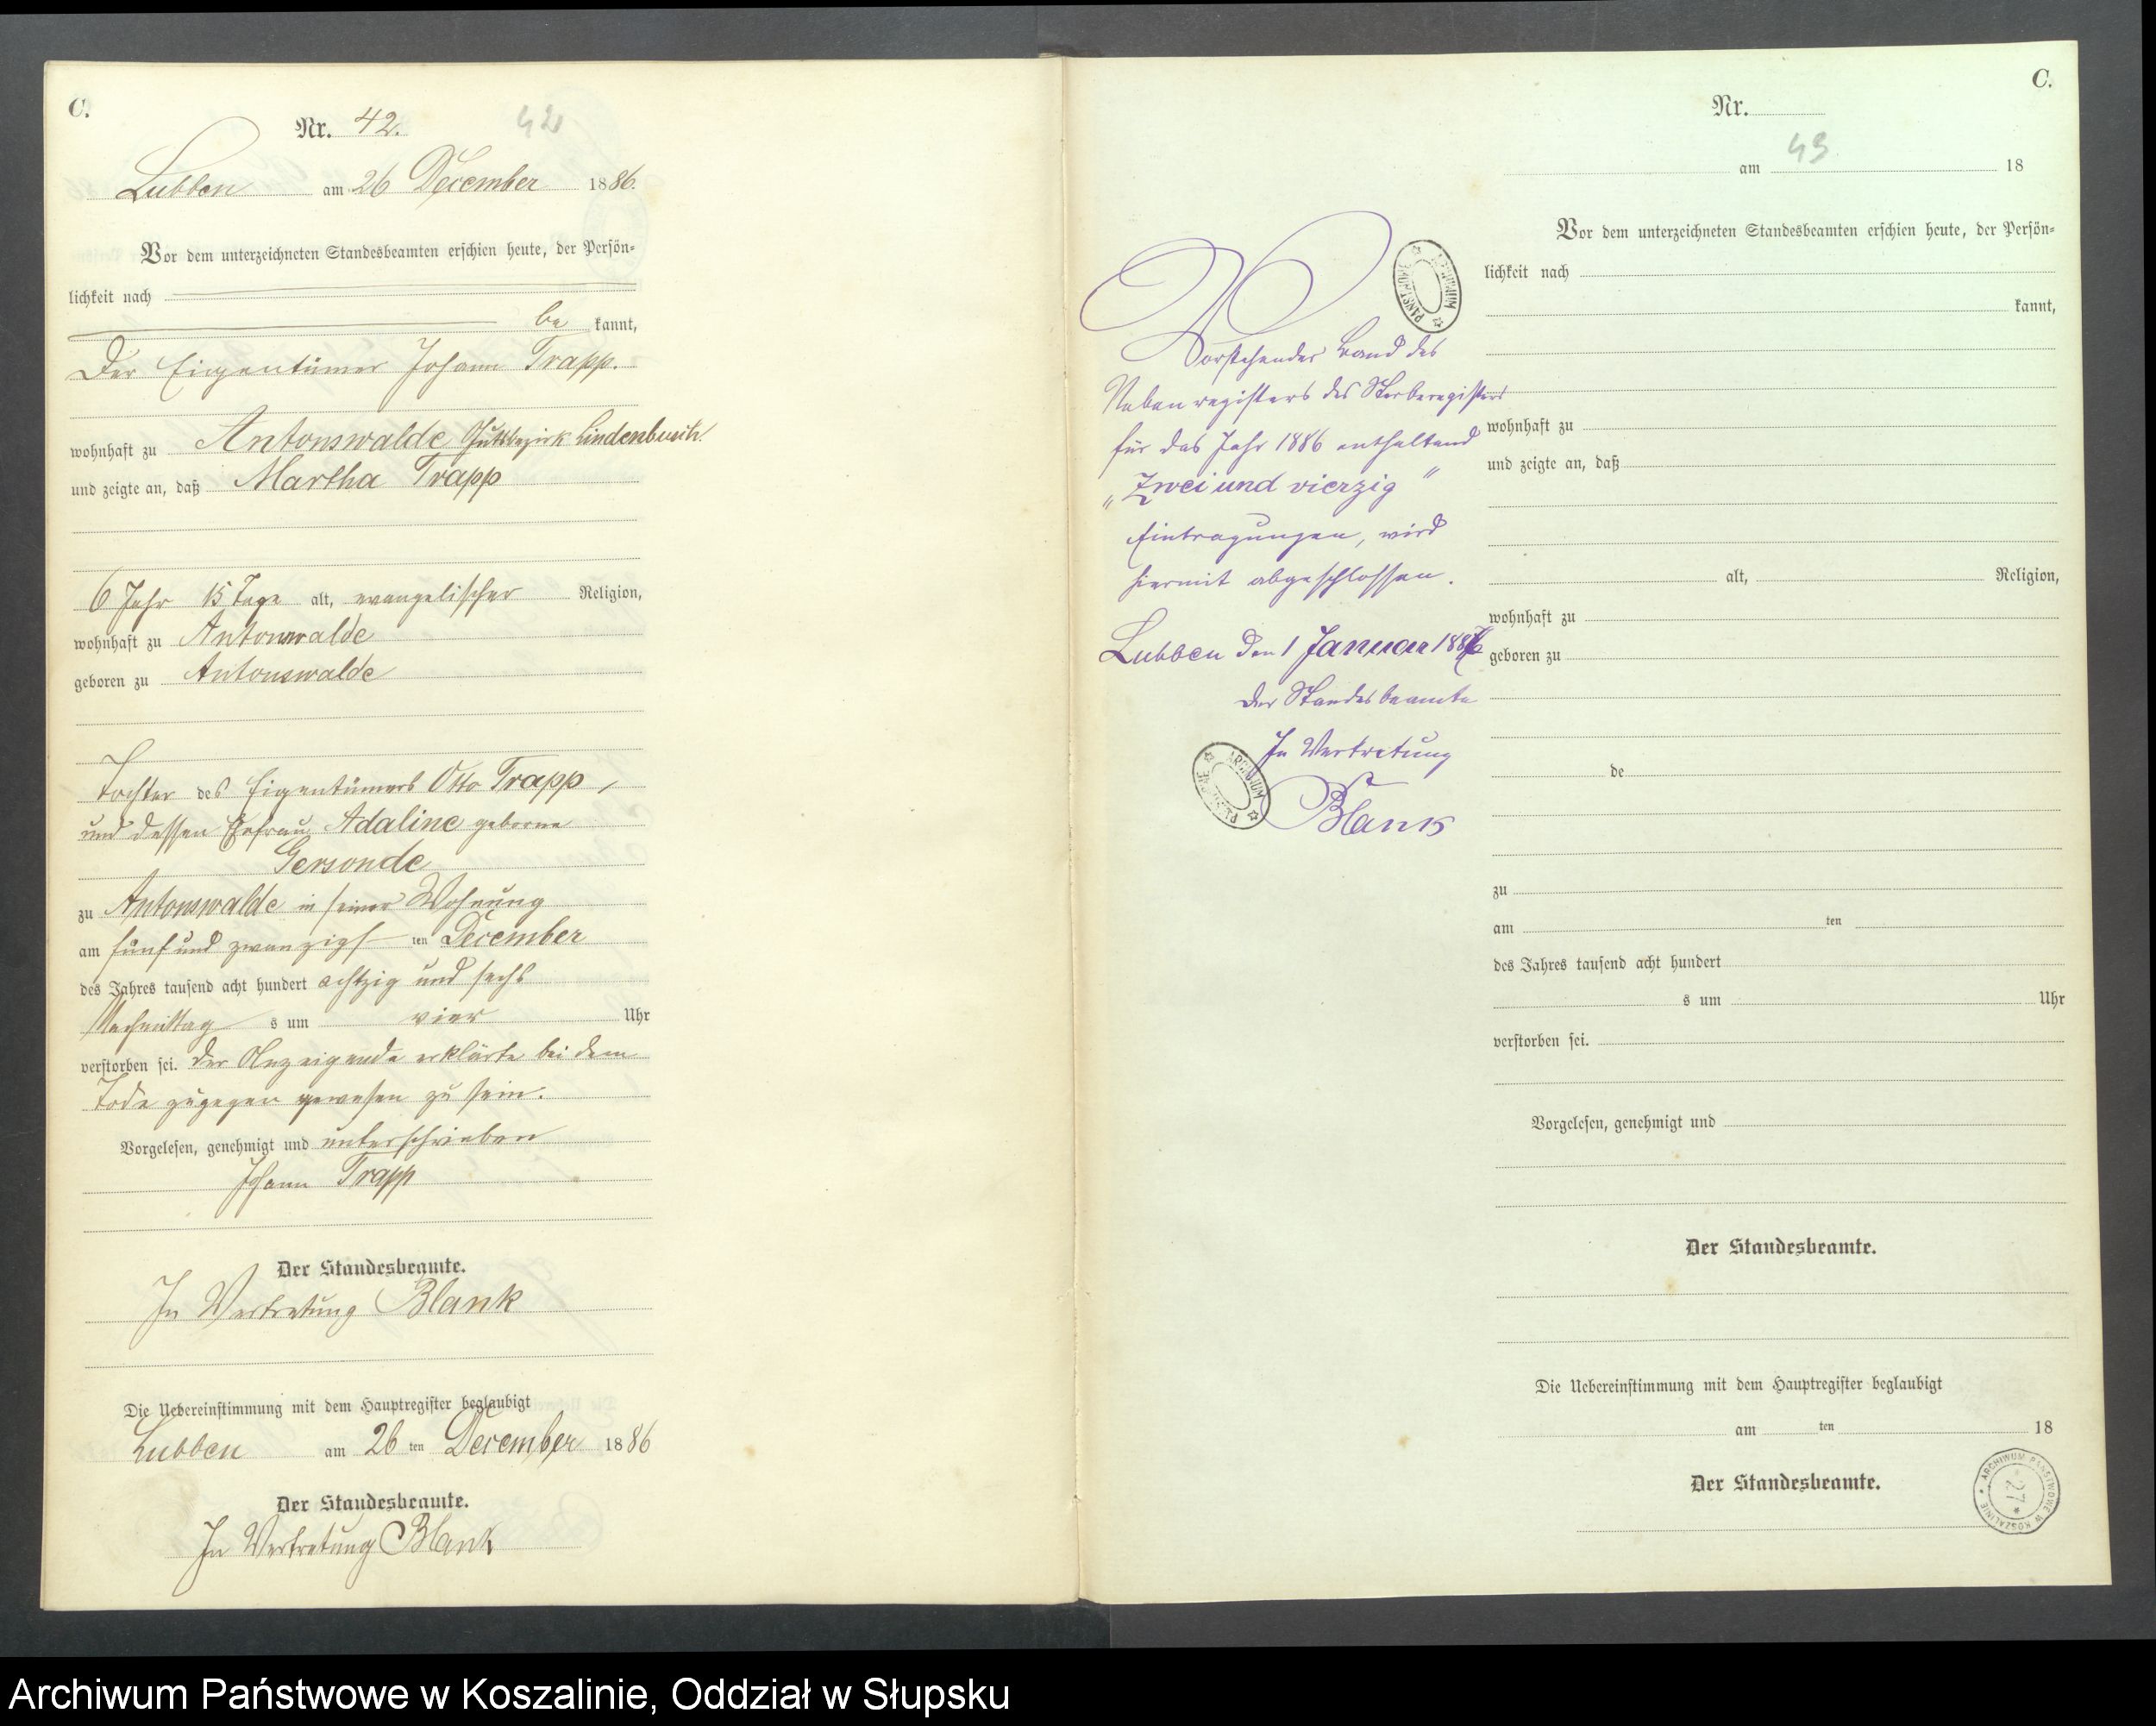 C.
Nr. 42.
42
Lubben am 26 December 1886.
Vor dem unterzeichneten Standesbeamten erschien heute, der Persön-
lichkeit nach
be kannt,
Der Eigentümer Johann Trapp.
wohnhaft zu Antonswalde Gutsbezirk Lindenbusch
und zeigte an, daß Martha Trapp
6 Jahr 15 Tage alt, evangelischer Religion,
wohnhaft zu Antonswalde
geboren zu Antonswalde
Tochter des Eigentümers Otto Trapp,
und dessen Ehefrau Adaline geborne
Gersonde
zu Antonswalde in seiner Wohnung
am fünf und zwanzigs ten December
des Jahres tausend acht hundert achtzig und sechs
Nachmittag s um vier Uhr
verstorben sei. Der Anzeigende erklärte bei dem
Tode zugegen gewesen zu sein.
Vorgelesen, genehmigt und unterschrieben
Johann Trapp
Der Standesbeamte.
In Vertretung Blank
Die Uebereinstimmung mit dem Hauptregister beglaubigt
Lubben am 26 ten December 1886
Der Standesbeamte.
In Vertretung Blank
Vorstehender Band des
Nebenregisters des Sterberegisters
für das Jahr 1886 enthaltend
„Zwei und vierzig"
Eintragungen, wird
hiermit abgeschlossen.
Lubben den 1 Januar 1887
Der Standesbeamte
In Vertretung
Blank
ARCHIWUM PAŃSTWOWE
ARCHIWUM PAŃSTWOWE
C.
Nr.
43
am 18
Vor dem unterzeichneten Standesbeamten erschien heute, der Persön-
lichkeit nach
kannt,
wohnhaft zu
und zeigte an, daß
alt, Religion,
wohnhaft zu
geboren zu
de
zu
am ten
des Jahres tausend acht hundert
s um Uhr
verstorben sei.
Vorgelesen, genehmigt und
Der Standesbeamte.
Die Uebereinstimmung mit dem Hauptregister beglaubigt
am ten 18
Der Standesbeamte.
ARCHIWUM PAŃSTWOWE W KOSZALINIE
* 27 *
Archiwum Państwowe w Koszalinie, Oddział w Słupsku